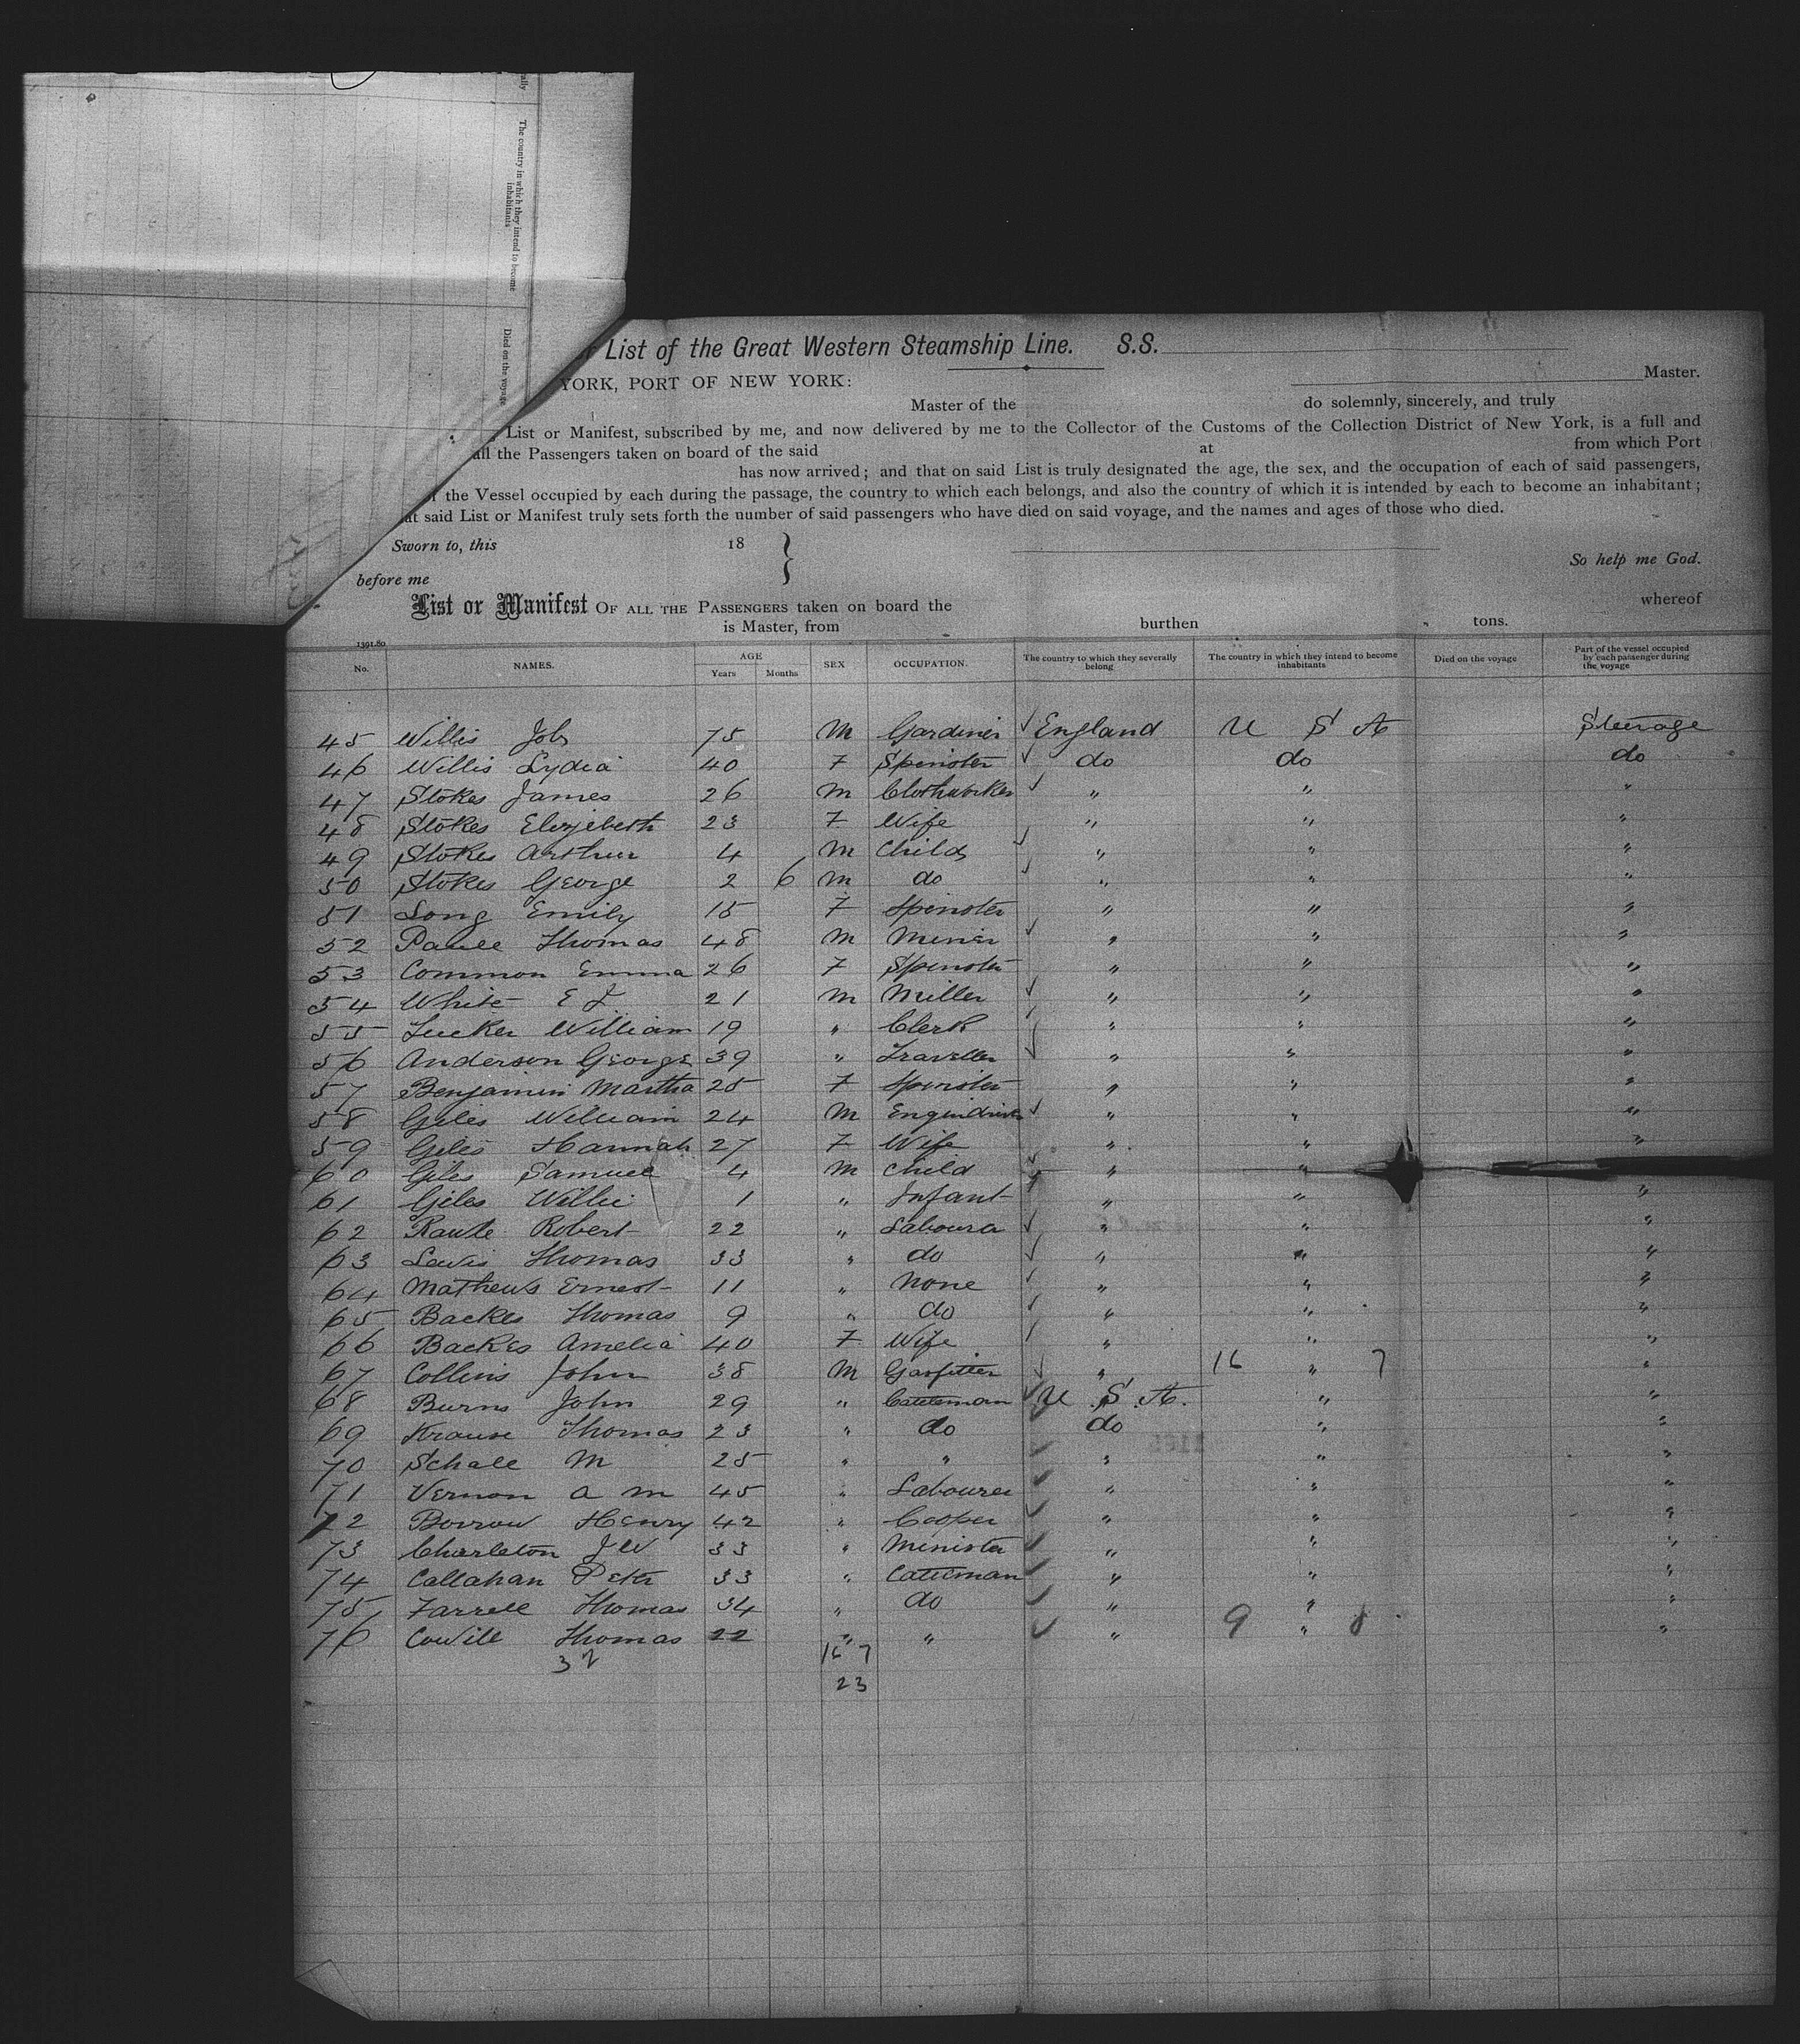 ally
The country in which they intend to become inhabitants
Died on the voyage
List of the Great Western Steamship Line. S.S.
YORK, PORT OF NEW YORK:
Master.
Master of the do solemnly, sincerely, and truly
List or Manifest, subscribed by me, and now delivered by me to the Collector of the Customs of the Collection District of New York, is a full and
all the Passengers taken on board of the said at from which Port
has now arrived; and that on said List is truly designated the age, the sex, and the occupation of each of said passengers,
the Vessel occupied by each during the passage, the country to which each belongs, and also the country of which it is intended by each to become an inhabitant;
at said List or Manifest truly sets forth the number of said passengers who have died on said voyage, and the names and ages of those who died.
Sworn to, this 18 }
So help me God.
before me
List or Manifest OF ALL THE PASSENGERS taken on board the whereof
is Master, from burthen tons.
1391.80
No. NAMES. AGE Years Months SEX OCCUPATION. The country to which they severally belong The country in which they intend to become inhabitants Died on the voyage Part of the vessel occupied by each passenger during the voyage
45 Willis Job 75 M Gardiner England U S A Steerage
46 Willis Lydia 40 F Spinster do do do
47 Stokes James 26 M Clothworker " " "
48 Stokes Elizjebeth 23 F Wife " " "
49 Stokes Arthur 4 M Child " " "
50 Stokes George 2 6 M do " " "
51 Long Emily 15 F Spinster " " "
52 Thomas 48 M Miner " " "
53 Common Emma 26 F Spinster " " "
54 White E J 21 M Miller " " "
55 Tucker William 19 " Clerk " " "
56 Anderson George 39 " Traveller " " "
57 Benjamin Martha 25 F Spinster " " "
58 Giles William 24 M " " "
59 Giles Hannah 27 F Wife " " "
60 Giles Samuel 4 M Child " " "
61 Giles Willie 1 " Infant " " "
62 Robert 22 " Labourer " " "
63 Lewis Thomas 33 " do " " "
64 Mathews Ernest 11 " None " " "
65 Backes Thomas 9 " do " " "
66 Backes Amelia 40 F Wife " " "
67 Collins John 38 M Gasfitter " 16 " 7 "
68 Burns John 29 " Catteman U S A. " "
69 Krause Thomas 23 " do do " "
70 Schall M 25 " " " " "
71 Vernon A M 45 " Labourer " " "
72 Borrow Henry 42 " Cooper " " "
73 Charleton J W 33 " Minister " " "
74 Callahan Peter 33 " Catteman " " "
75 Farrell Thomas 34 " do " " "
76 Thomas 22 " " " 9 " "
32 16 7
23